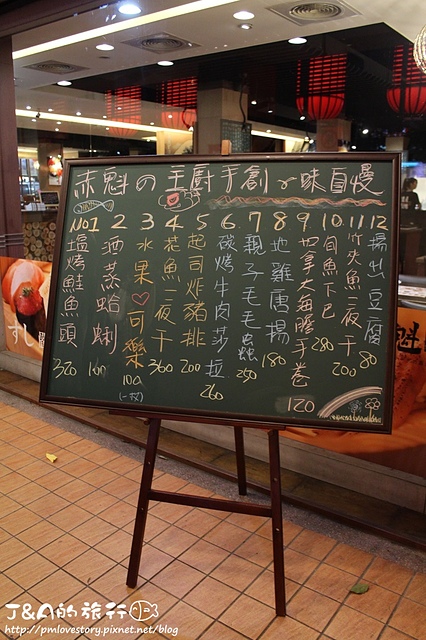 赤魁の主廚手創の味自慢
NO1 塩烤鮭魚頭 320
2 酒蒸蛤蜊 160
3 水果♡可樂 100 (一杯)
4 花魚一夜干 360
5 起司炸豬排 200
6. 碳烤牛肉莎拉 260
7 親子毛毛蟲 250
8 地雞唐揚 180
9 加拿大海膽手卷 120
10. 虱目魚下巴 280
11 竹筴魚一夜干 200
12 揚出豆腐 80
すし
魁
J&A的旅行
http://pmlovestory.pixnet.net/blog